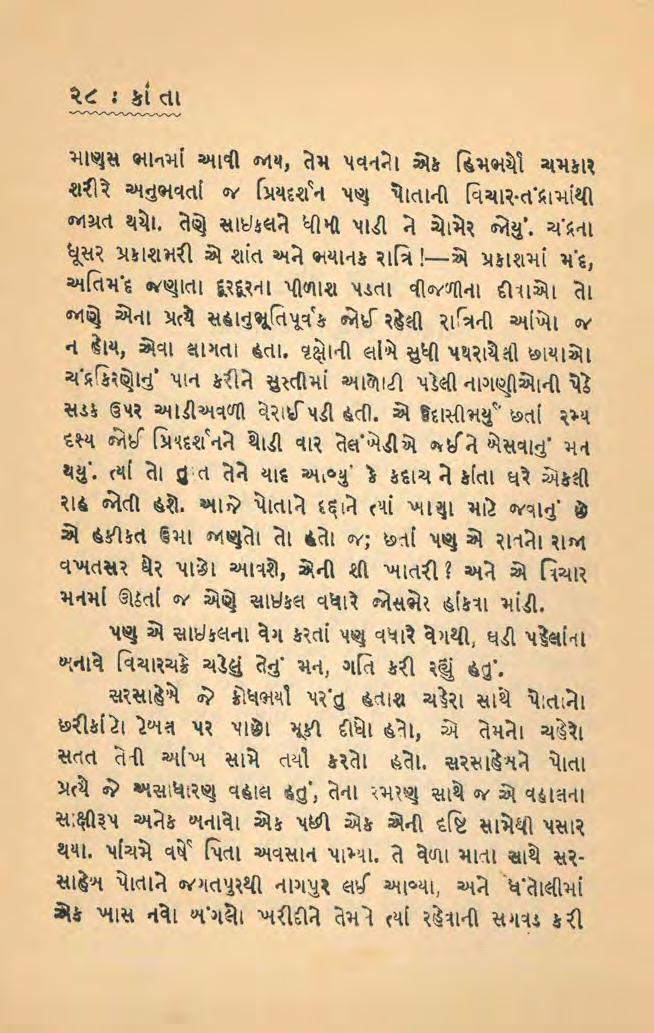 ૨૮ : કાંતા
માણસ ભાનમાં આવી જાય, તેમ પવનનો એક હિમભર્યો ચમકાર
શરીરે અનુભવતાં જ પ્રિયદર્શન પણ પોતાની વિચાર-તંદ્રામાંથી
જાગ્રત થયો. તેણે સાઇકલને ધીમી પાડી ને ચોમેર જોયું. ચંદ્રના
ધૂસર પ્રકાશભરી એ શાંત અને ભયાનક રાત્રિ !—એ પ્રકાશમાં મંદ,
અતિમંદ જણાતા દૂરદૂરના પીળાશ પડતા વીજળીના દીવાઓ તો
જાણે એના પ્રત્યે સહાનુભૂતિપૂર્વક જોઈ રહેલી રાત્રિની આંખો જ
ન હોય, એવા લાગતા હતા. વૃક્ષોની લાંબે સુધી પથરાયેલી છાયાઓ
ચંદ્રકિરણોનું પાન કરીને સુસ્તીમાં આળોટી પડેલી નાગણીઓની પેઠે
સડક ઉપર આડીઅવળી વેરાઈ પડી હતી. એ ઉદાસીમર્યું છતાં રમ્ય
દૃશ્ય જોઈ પ્રિયદર્શનને થોડી વાર તેલંખેડીએ જઈને બેસવાનું મન
થયું. ત્યાં તો તુરત તેને યાદ આવ્યું કે કદાચ ને કાંતા ઘરે એકલી
રાહ જોતી હશે. આજે પોતાને દદ્દાને ત્યાં ખાણા માટે જવાનું છે
એ હકીકત ઉમા જાણતો તો હતો જ; છતાં પણ એ રાતનો રાજા
વખતસર ઘેર પાછો આવશે, એની શી ખાતરી ? અને એ વિચાર
મનમાં ઊઠતાં જ એણે સાઇકલ વધારે જોસભેર હાંકવા માંડી.
પણ એ સાઇકલના વેગ કરતાં પણ વધારે વેગથી, ઘડી પહેલાંના
બનાવે વિચારચક્રે ચડેલું તેનું મન, ગતિ કરી રહ્યું હતું.
સરસાહેબે જે ક્રોધભર્યા પરંતુ હતાશ ચહેરા સાથે પોતાનો
છરીકાંટો ટેબલ પર પાછો મૂકી દીધો હતો, એ તેમનો ચહેરો
સતત તેની આંખ સામે તર્યા કરતો હતો. સરસાહેબને પોતા
પ્રત્યે જે અસાધારણ વહાલ હતું, તેના સ્મરણ સાથે જ એ વહાલના
સાક્ષીરૂપ અનેક બનાવો એક પછી એક એની દૃષ્ટિ સામેથી પસાર
થયા. પાંચમે વર્ષે પિતા અવસાન પામ્યા. તે વેળા માતા સાથે સર-
સાહેબ પોતાને જગતપુરથી નાગપુર લઈ આવ્યા, અને ધંતોલીમાં
એક ખાસ નવો બંગલો ખરીદીને તેમને ત્યાં રહેવાની સગવડ કરી